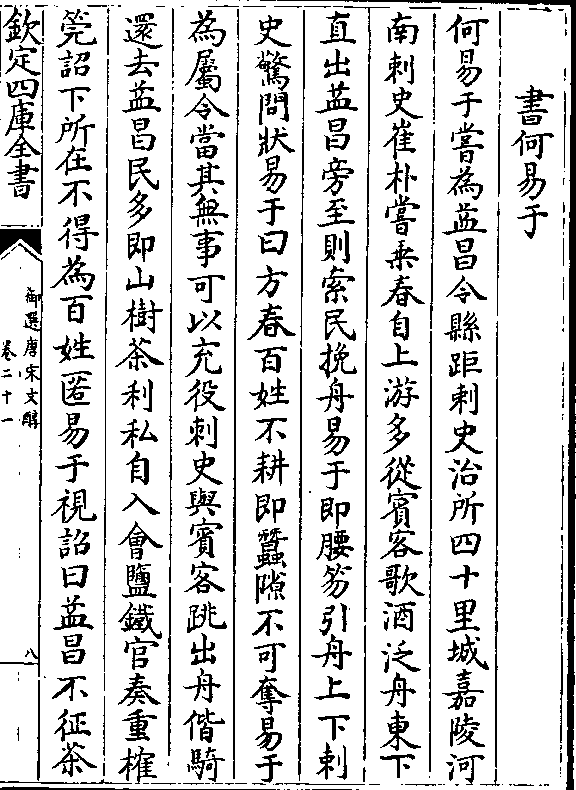 書何易于
何易于嘗為益昌令縣距刺史治所四十里城嘉陵河
南刺史崔朴嘗乗春自上游多從賓客歌酒泛舟東下
直出益昌旁至則索民挽舟易于即腰笏引舟上下刺
史驚問狀易于曰方春百姓不耕即蠶隙不可奪易于
為屬令當其無事可以充役刺史與賓客跳出舟偕騎
還去益昌民多即山樹茶利私自入會鹽鐵官奏重榷
筦詔下所在不得為百姓匿易于視詔曰益昌不征茶
欽定四庫全書
御選唐宋文醇
卷二十一
八